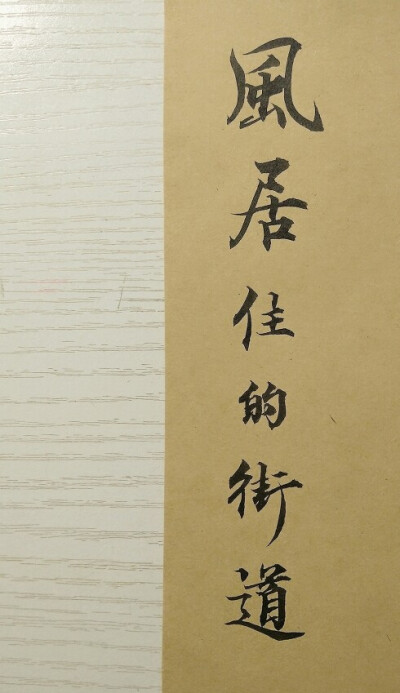 風居住的街道